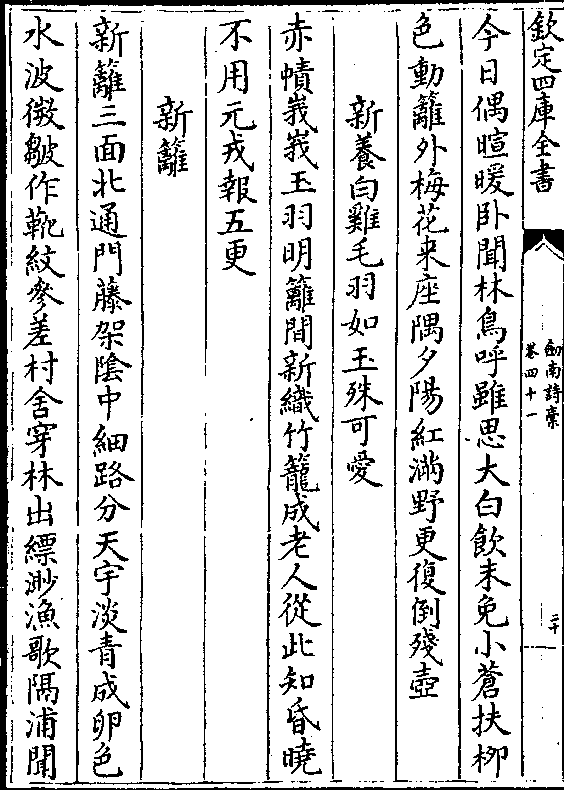 欽定四庫全書
劒南詩稾
卷四十一
二十
今日偶暄暖卧聞林鳥呼雖思大白飲未免小蒼扶柳
色動籬外梅花来座隅夕陽紅滿野更復倒殘壺
新養白雞毛羽如玉殊可愛
赤幘峩峩玉羽明籬間新織竹籠成老人從此知昏曉
不用元戎報五更
新籬
新籬三面北通門藤架隂中細路分天宇淡青成卵色
水波微皺作靴紋參差村舍穿林出縹渺漁歌隔浦聞